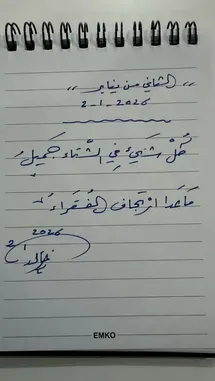 ,, الثاني من يناير ,,
2-1-2026
كُلُّ شَيْءٍ فِي الشِّتَاءِ جَمِيلٌ
مَاعَدا ارْتِجَافَ الفُقَراءِ
2026
2
EMKO